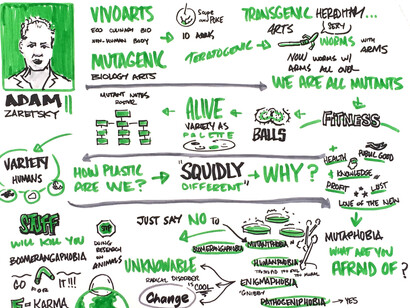 VIVOARTS
BIO
NON-HUMAN BODY
MUTAGENIC
BIOLOGY ARTS
ADAM
ZARETSKY
SCOPE
AND POKE
10 ARMS
TERATOGENIC
TRANSGENIC
ARTS
HEREDITARY...
SEXY
WORMS WITH
ARMS
NOW WORMS W/
ARMS ALL OVER...
WE ARE ALL MUTANTS
MUTANT NOTES
ALIVE
VARIETY AS
PALETTE
BALLS
FITNESS
HEALTH
PUBLIC GOOD
KNOWLEDGE
PROFIT
LUST
LOVE OF THE NON
VARIETY
HUMANS
HOW PLASTIC
ARE WE?
"SQUIDLY
DIFFERENT"
WHY?
MUTAPHOBIA
WHAT ARE YOU
AFRAID OF?
STUFF
WILL KILL YOU
BOOMERANGAPHOBIA
GO FOR IT!!!
= KARMA
DOING
RESEARCH
ON
ANIMALS
JUST SAY NO TO
BOOMERANGPHOBIA
MUTANTPHOBIA
HUMANIPHOBIA
ENIGMAPHOBIA
PATHOGENIPHOBIA
YES
UNKNOWABLE
RADICAL DISORDER
IS
COOL
Change